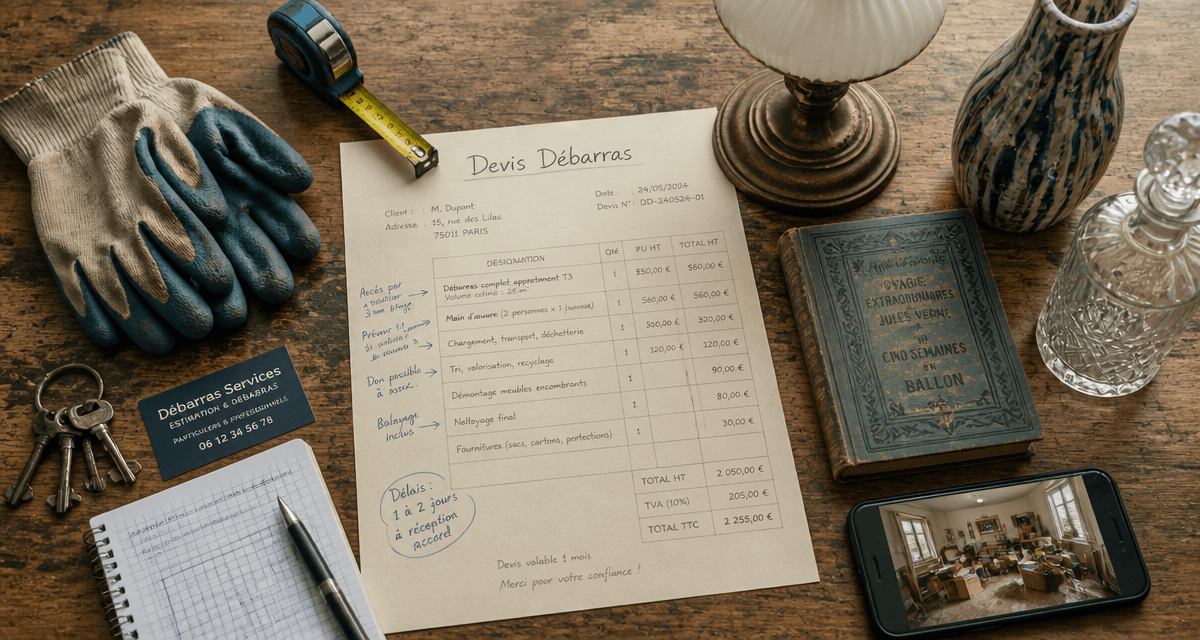 Devis Débarras
Client : : M. Dupont
Adresse : 15, rue des Lilas
75011 PARIS
Date : . 24/05/2024
Devis N° : DD-240524-01
DESIGNATION Qté PU HT TOTAL HT
Débarras complet appartement T3 1 350,00 € 560,00 €
Volume estimé : 25 m³
Main d'œuvre (2 personnes x 1 journée) 1 560,00 € 560,00 €
Chargement, transport, déchetterie 1 320,00 €
Tri, valorisation, recyclage 1 120,00 € 120,00 €
Démontage meubles encombrants 1 90,00 €
Nettoyage final 1 80,00 €
Fournitures (sacs, cartons, protections) 30,00 €
TOTAL HT 2 050,00 €
TVA (10%) 205,00 €
TOTAL TTC 2 255,00 €
Accès par
Prévenir
Don possible
à
Balayage
inclus
Délais :
1 à 2 jours
à réception
accord
Devis valable 1 mois
Merci pour votre confiance !
Débarras Services
ESTIMATION & DÉBARRAS
PARTICULIERS & PROFESSIONNELS
06 12 34 56 78
VOYAGE
EXTRAORDINAIRES
JULES VERNE
CINQ SEMAINES
EN
BALLON